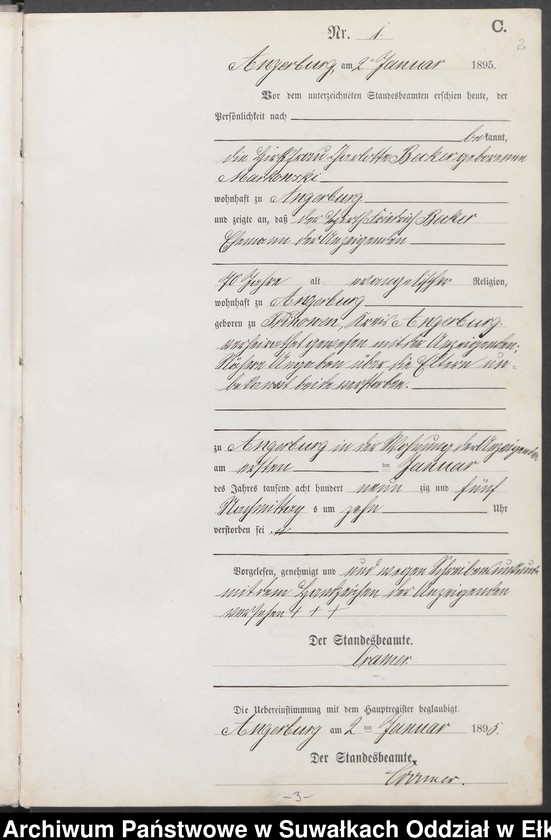 C.
2
Nr. 1.
Angerburg, am 2ten Januar 1895.
Vor dem unterzeichneten Standesbeamten erschien heute, der
Persönlichkeit nach
bekannt,
die Wirthfrau Charlotte Becker geborenen
Markowski
wohnhaft zu Angerburg
und zeigte an, daß der Wirth Friedrich Becker
Ehemann der Anzeigenden
70 Jahre alt evangelischer Religion,
wohnhaft zu Angerburg
geboren zu Kreis Angerburg.
verheirathet gewesen mit der Anzeigenden;
Nähere Angaben über die Eltern un-
bekannt beide verstorben.
zu Angerburg in der Wohnung der Anzeigenden
am ersten ten Januar
des Jahres tausend acht hundert neun zig und fünf
Nachmittags um zehn Uhr
verstorben sei
Vorgelesen, genehmigt und und wegen Schreibensunkunde
mit dem Handzeichen der Anzeigenden
versehen + + +
Der Standesbeamte.
Cramer.
Die Uebereinstimmung mit dem Hauptregister beglaubigt.
Angerburg am 2 ten Januar 1895.
Der Standesbeamte.
Cramer.
-3-
Archiwum Państwowe w Suwałkach Oddział w Ełk